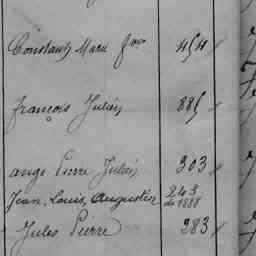 Constant Marie fois 454
françois Julien 885
ange Pierre Julien 303
Jean, Louis, Augustin 243 de 1888
Jules Pierre 283